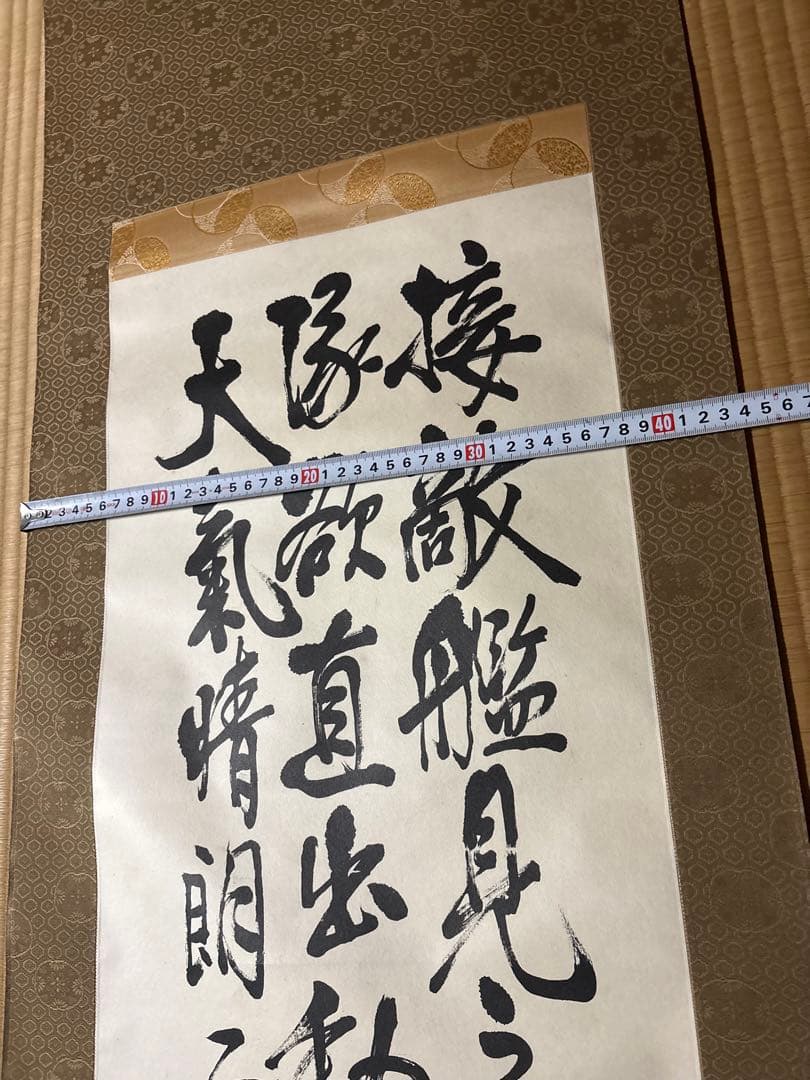 接敵艦見之
隊欲直出動
天氣晴朗
3 4 5 6 7 8 9 10 1 2 3 4 5 6 7 8 9 20 1 2 3 4 5 6 7 8 9 30 1 2 3 4 5 6 7 8 9 40 1 2 3 4 5 6 7